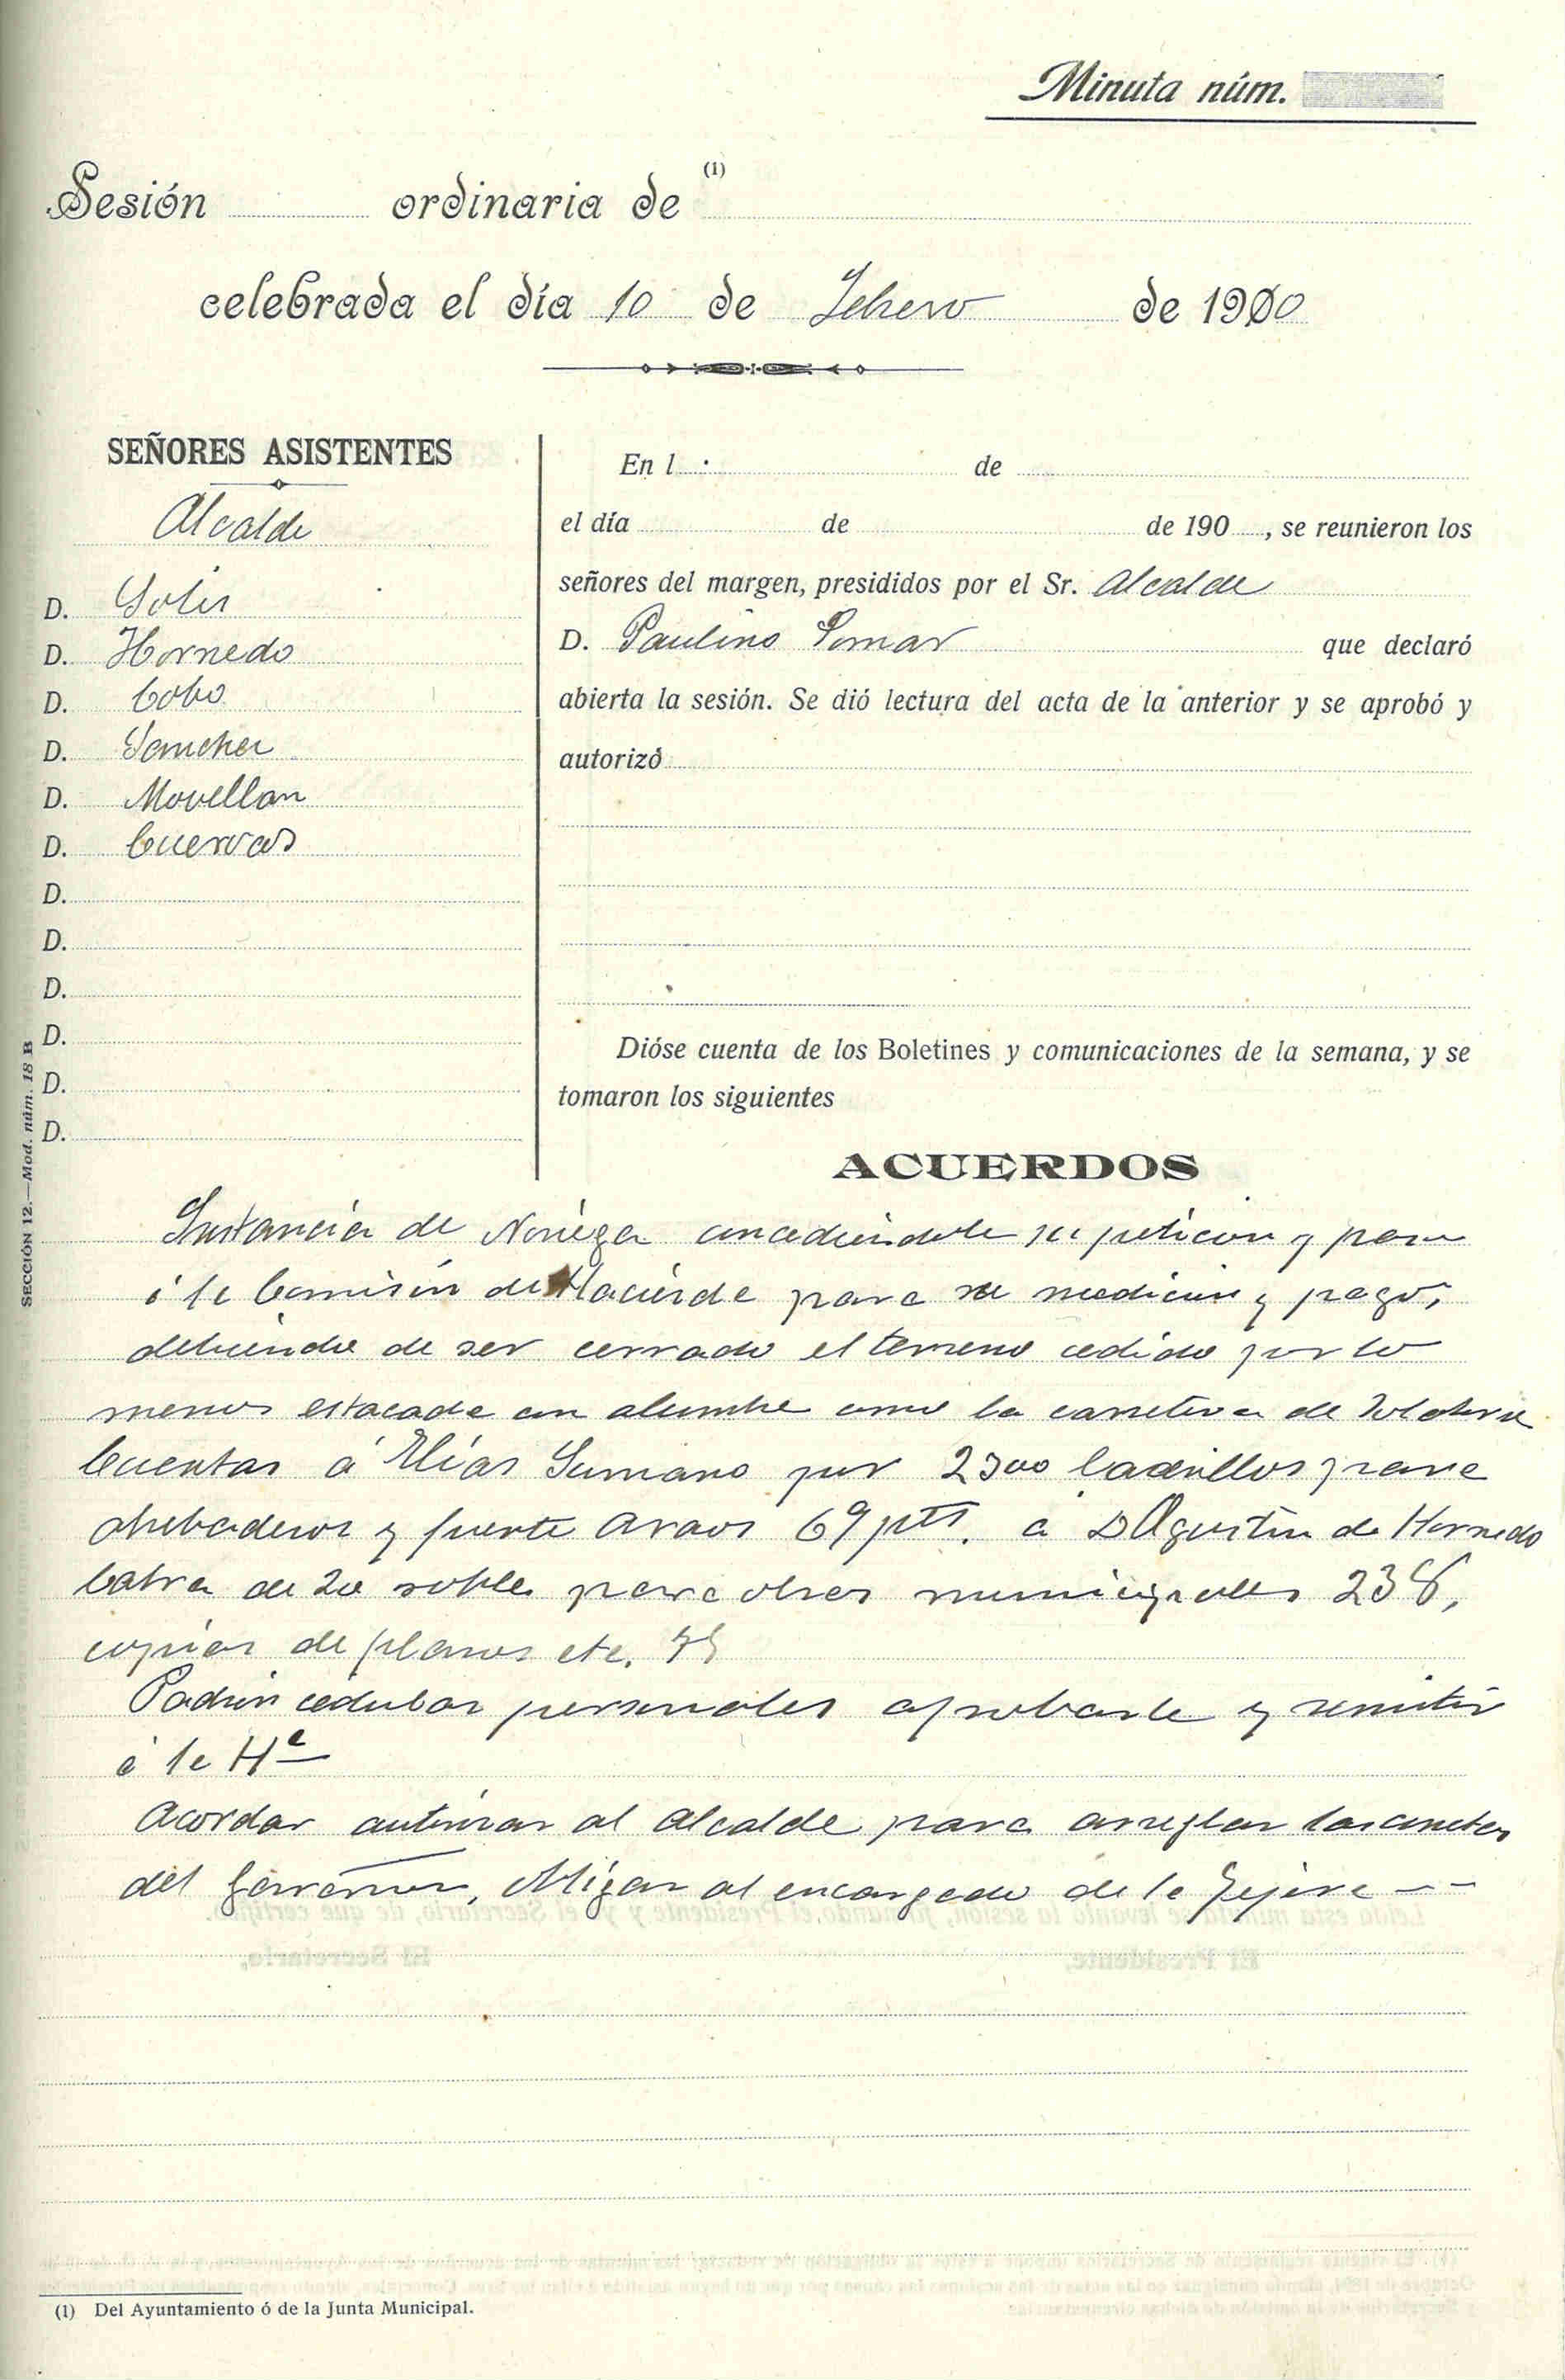 Minuta núm.
Sesión ordinaria de (1)
celebrada el día 10 de Febrero de 1900
SEÑORES ASISTENTES
Alcalde
D. Solis
D. Hornedo
D. Cobo
D. Sanchez
D. Movellan
D. Cuervas
D.
D.
D.
D.
D.
D.
En l de
el día de de 190 , se reunieron los
señores del margen, presididos por el Sr. Alcalde
D. Paulino Somar que declaró
abierta la sesión. Se dió lectura del acta de la anterior y se aprobó y
autorizó
Dióse cuenta de los Boletines y comunicaciones de la semana, y se
tomaron los siguientes
ACUERDOS
Instancia de Noriega concediendole su peticion y pase
á la Comisión de Hacienda para su medicion y pago,
debiendo de ser cerrado el terreno cedido por lo
menos estacada con alambre como la carretera de
Cuentas á Elías Sumano por 2300 ladrillos para
abrebaderos y fuente Araos 69 pts. a D Agustin de Hornedo
labra de 20 robles para obras municipales 238,
copias de planos etc. 75
Padrón cedulas personales aprobarle y remitir
á la Hª
Acordar autorizar al Alcalde para arreglar las cunetas
del , al encargado de la
SECCIÓN 12.—Mod. núm. 18 B
(1) Del Ayuntamiento ó de la Junta Municipal.